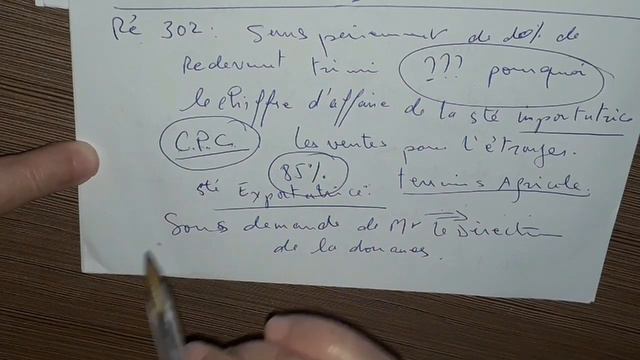 Ré 302: Sans paiement de de
Redevant trimi ??? pourquoi
le chiffre d'affaire de la sté importatrice
C.P.C. les ventes pour l'étranger.
85% sté Exportatrice: terrains Agricole.
Sous demande de Mr le Direction
de la douanes.